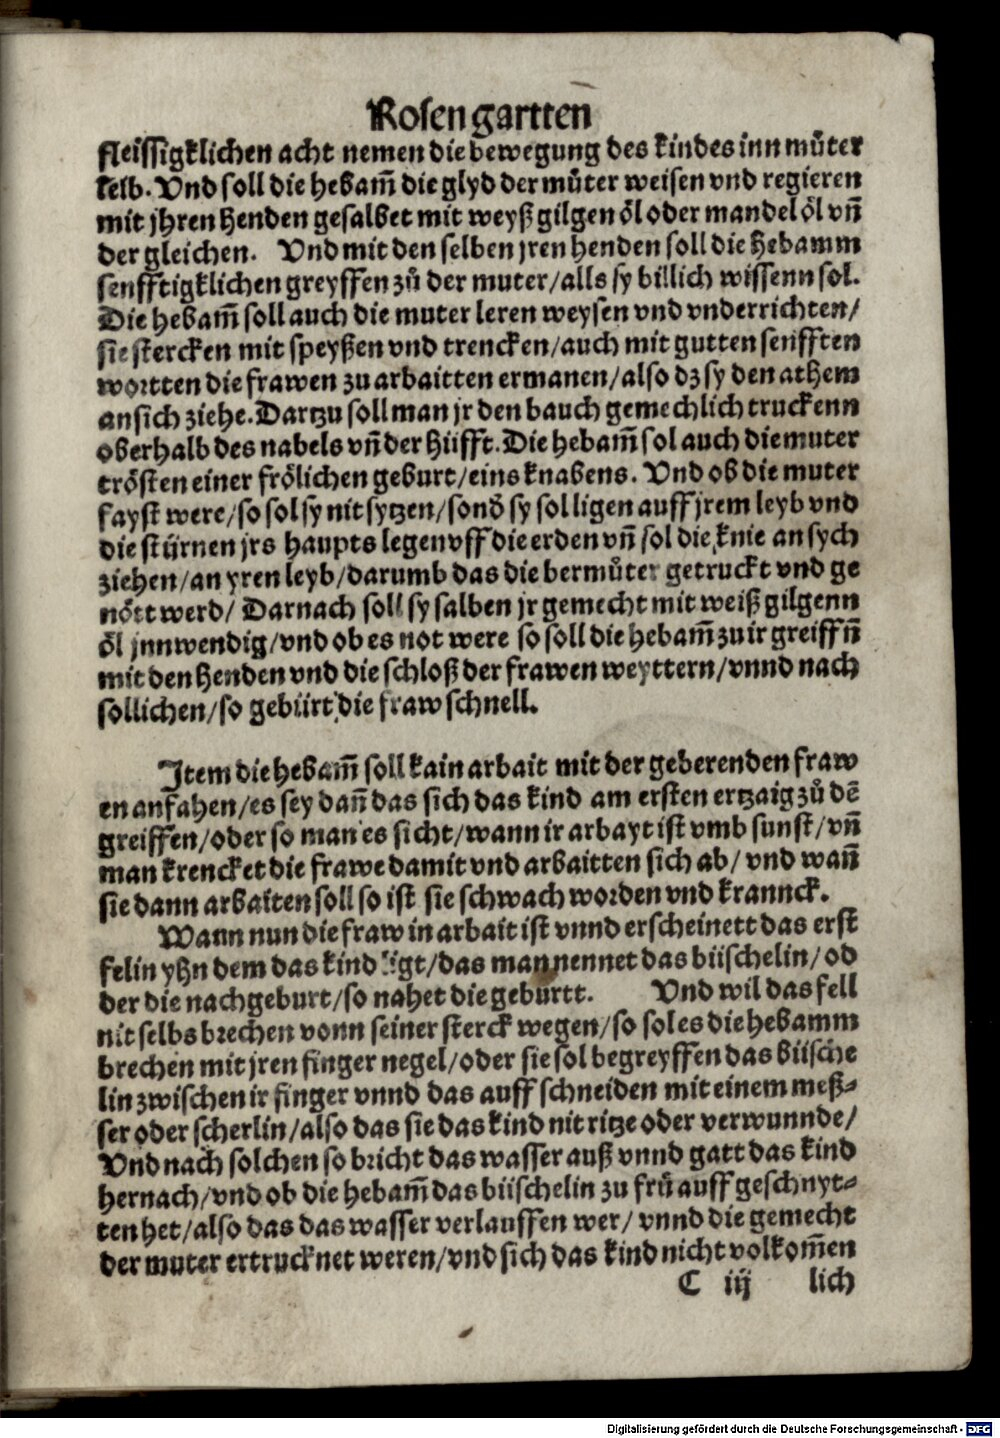 Rosengartten
fleissigklichen acht nemen die bewegung des kindes inn můter
kelb. Vnd soll die hebam̄ die glyd der můter weisen vnd regieren
mit jhren henden gesalbet mit weyß gilgen öl oder mandel öl vn̄
der gleichen. Vnd mit den selben jren henden soll die hebamm
senfftigklichen greyffen zů der muter/alls sy billich wissenn sol.
Die hebam̄ soll auch die muter leren weysen vnd vnderrichten/
sie stercken mit speyßen vnd trencken/auch mit gutten senfften
wortten die frawen zu arbaitten ermanen/also dz sy den athem
an sich ziehe. Dartzu soll man jr den bauch gemechlich truckenn
oberhalb des nabels vn̄ der hüfft. Die hebam̄ sol auch die muter
trösten einer frölichen geburt/eins knabens. Vnd ob die muter
fayst were/so sol sy nit sytzen/sond̕ sy sol ligen auff jrem leyb vnd
die stürnen jrs haupts legen vff die erden vn̄ sol die knie an sych
ziehen/an yren leyb/darumb das die bermůter getruckt vnd ge
nött werd/ Darnach soll sy salben jr gemecht mit weiß gilgenn
öl jnnwendig/vnd ob es not were so soll die hebam̄ zu ir greiffn̄
mit den henden vnd die schloß der frawen weyttern/vnnd nach
sollichen/so gebürt die fraw schnell.
Item die hebam̄ soll kain arbait mit der geberenden fraw
en anfahen/es sey dan̄ das sich das kind am ersten ertzaig zů dē
greiffen/oder so man es sicht/wann ir arbayt ist vmb sunst/vn̄
man krencket die frawe damit vnd arbaitten sich ab/ vnd wan̄
sie dann arbaiten soll so ist sie schwach worden vnd krannck.
Wann nun die fraw in arbait ist vnnd erscheinett das erst
felin yhn dem das kind ligt/das man nennet das büschelin/od
der die nachgeburt/so nahet die geburtt. Vnd wil das fell
nit selbs brechen vonn seiner sterck wegen/so sol es die hebamm
brechen mit jren finger negel/oder sie sol begreyffen das büsche
lin zwischen ir finger vnnd das auff schneiden mit einem meß⸗
ser oder scherlin/also das sie das kind nit ritze oder verwunnde/
Vnd nach solchen so bricht das wasser auß vnnd gatt das kind
hernach/vnd ob die hebam̄ das büschelin zu frů auff geschnyt⸗
ten het/also das das wasser verlauffen wer/ vnnd die gemecht
der muter ertrucknet weren/vnd sich das kind nicht volkom̄en
C iij lich
Digitalisierung gefördert durch die Deutsche Forschungsgemeinschaft - DFG